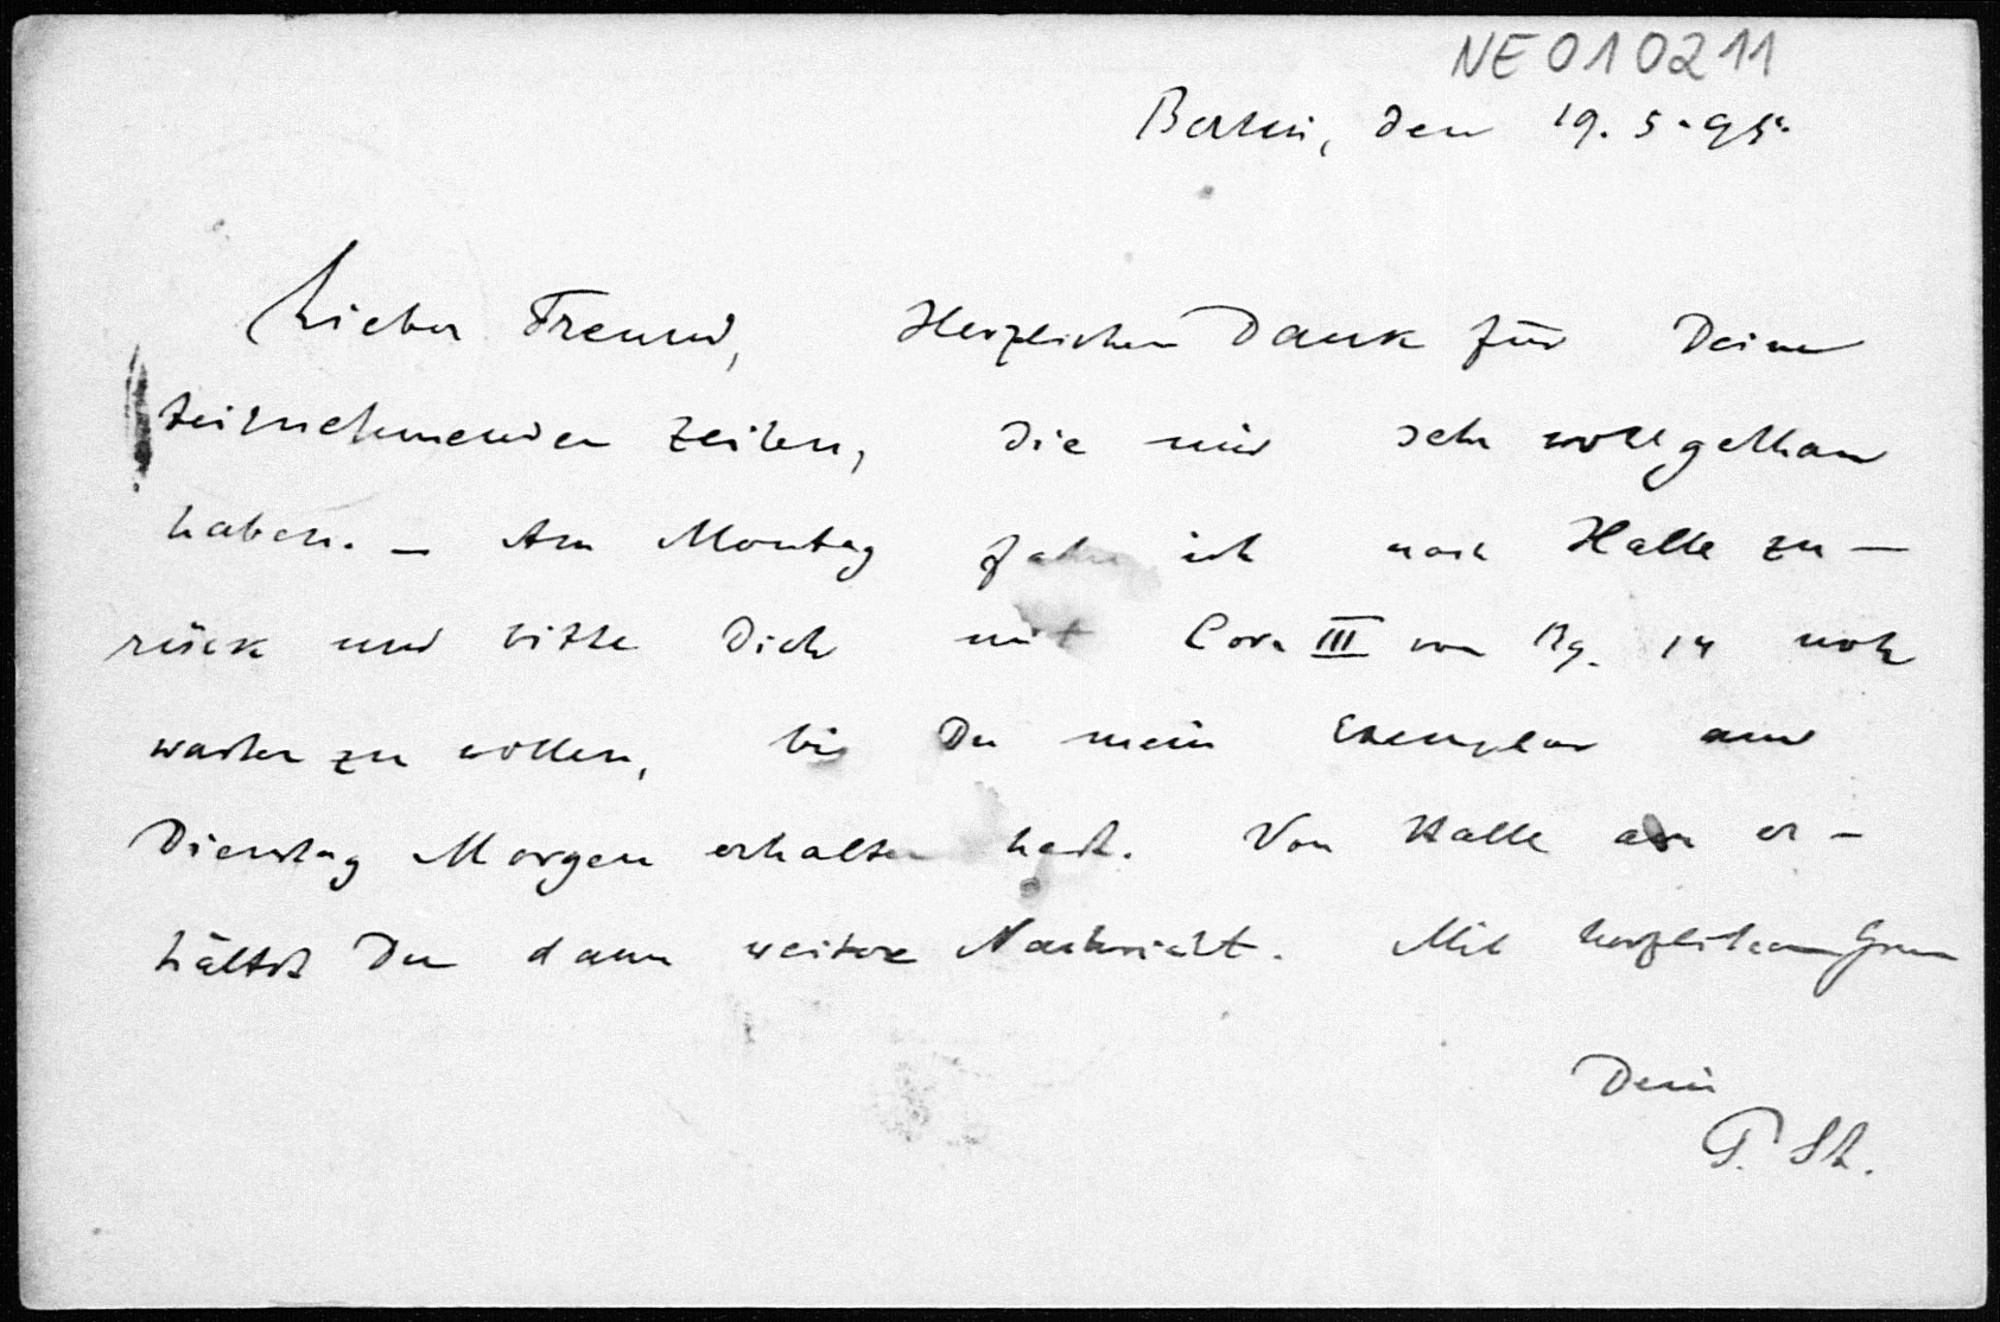 NE010211
Berlin, den 19. 5. 95.
Lieber Freund, Herzlichen Dank für Deine
teilnehmenden Zeilen, die mir sehr wohlgethan
haben. – Am Montag fahre ich nach Halle zu-
rück und bitte Dich mit Corr. III von Bg. 14 noch
warten zu wollen, bis Du mein Exemplar am
Dienstag Morgen erhalten hast. Von Halle aus er-
hältst Du dann weitere Nachricht. Mit herzlichem Gruss
Dein
P. St.